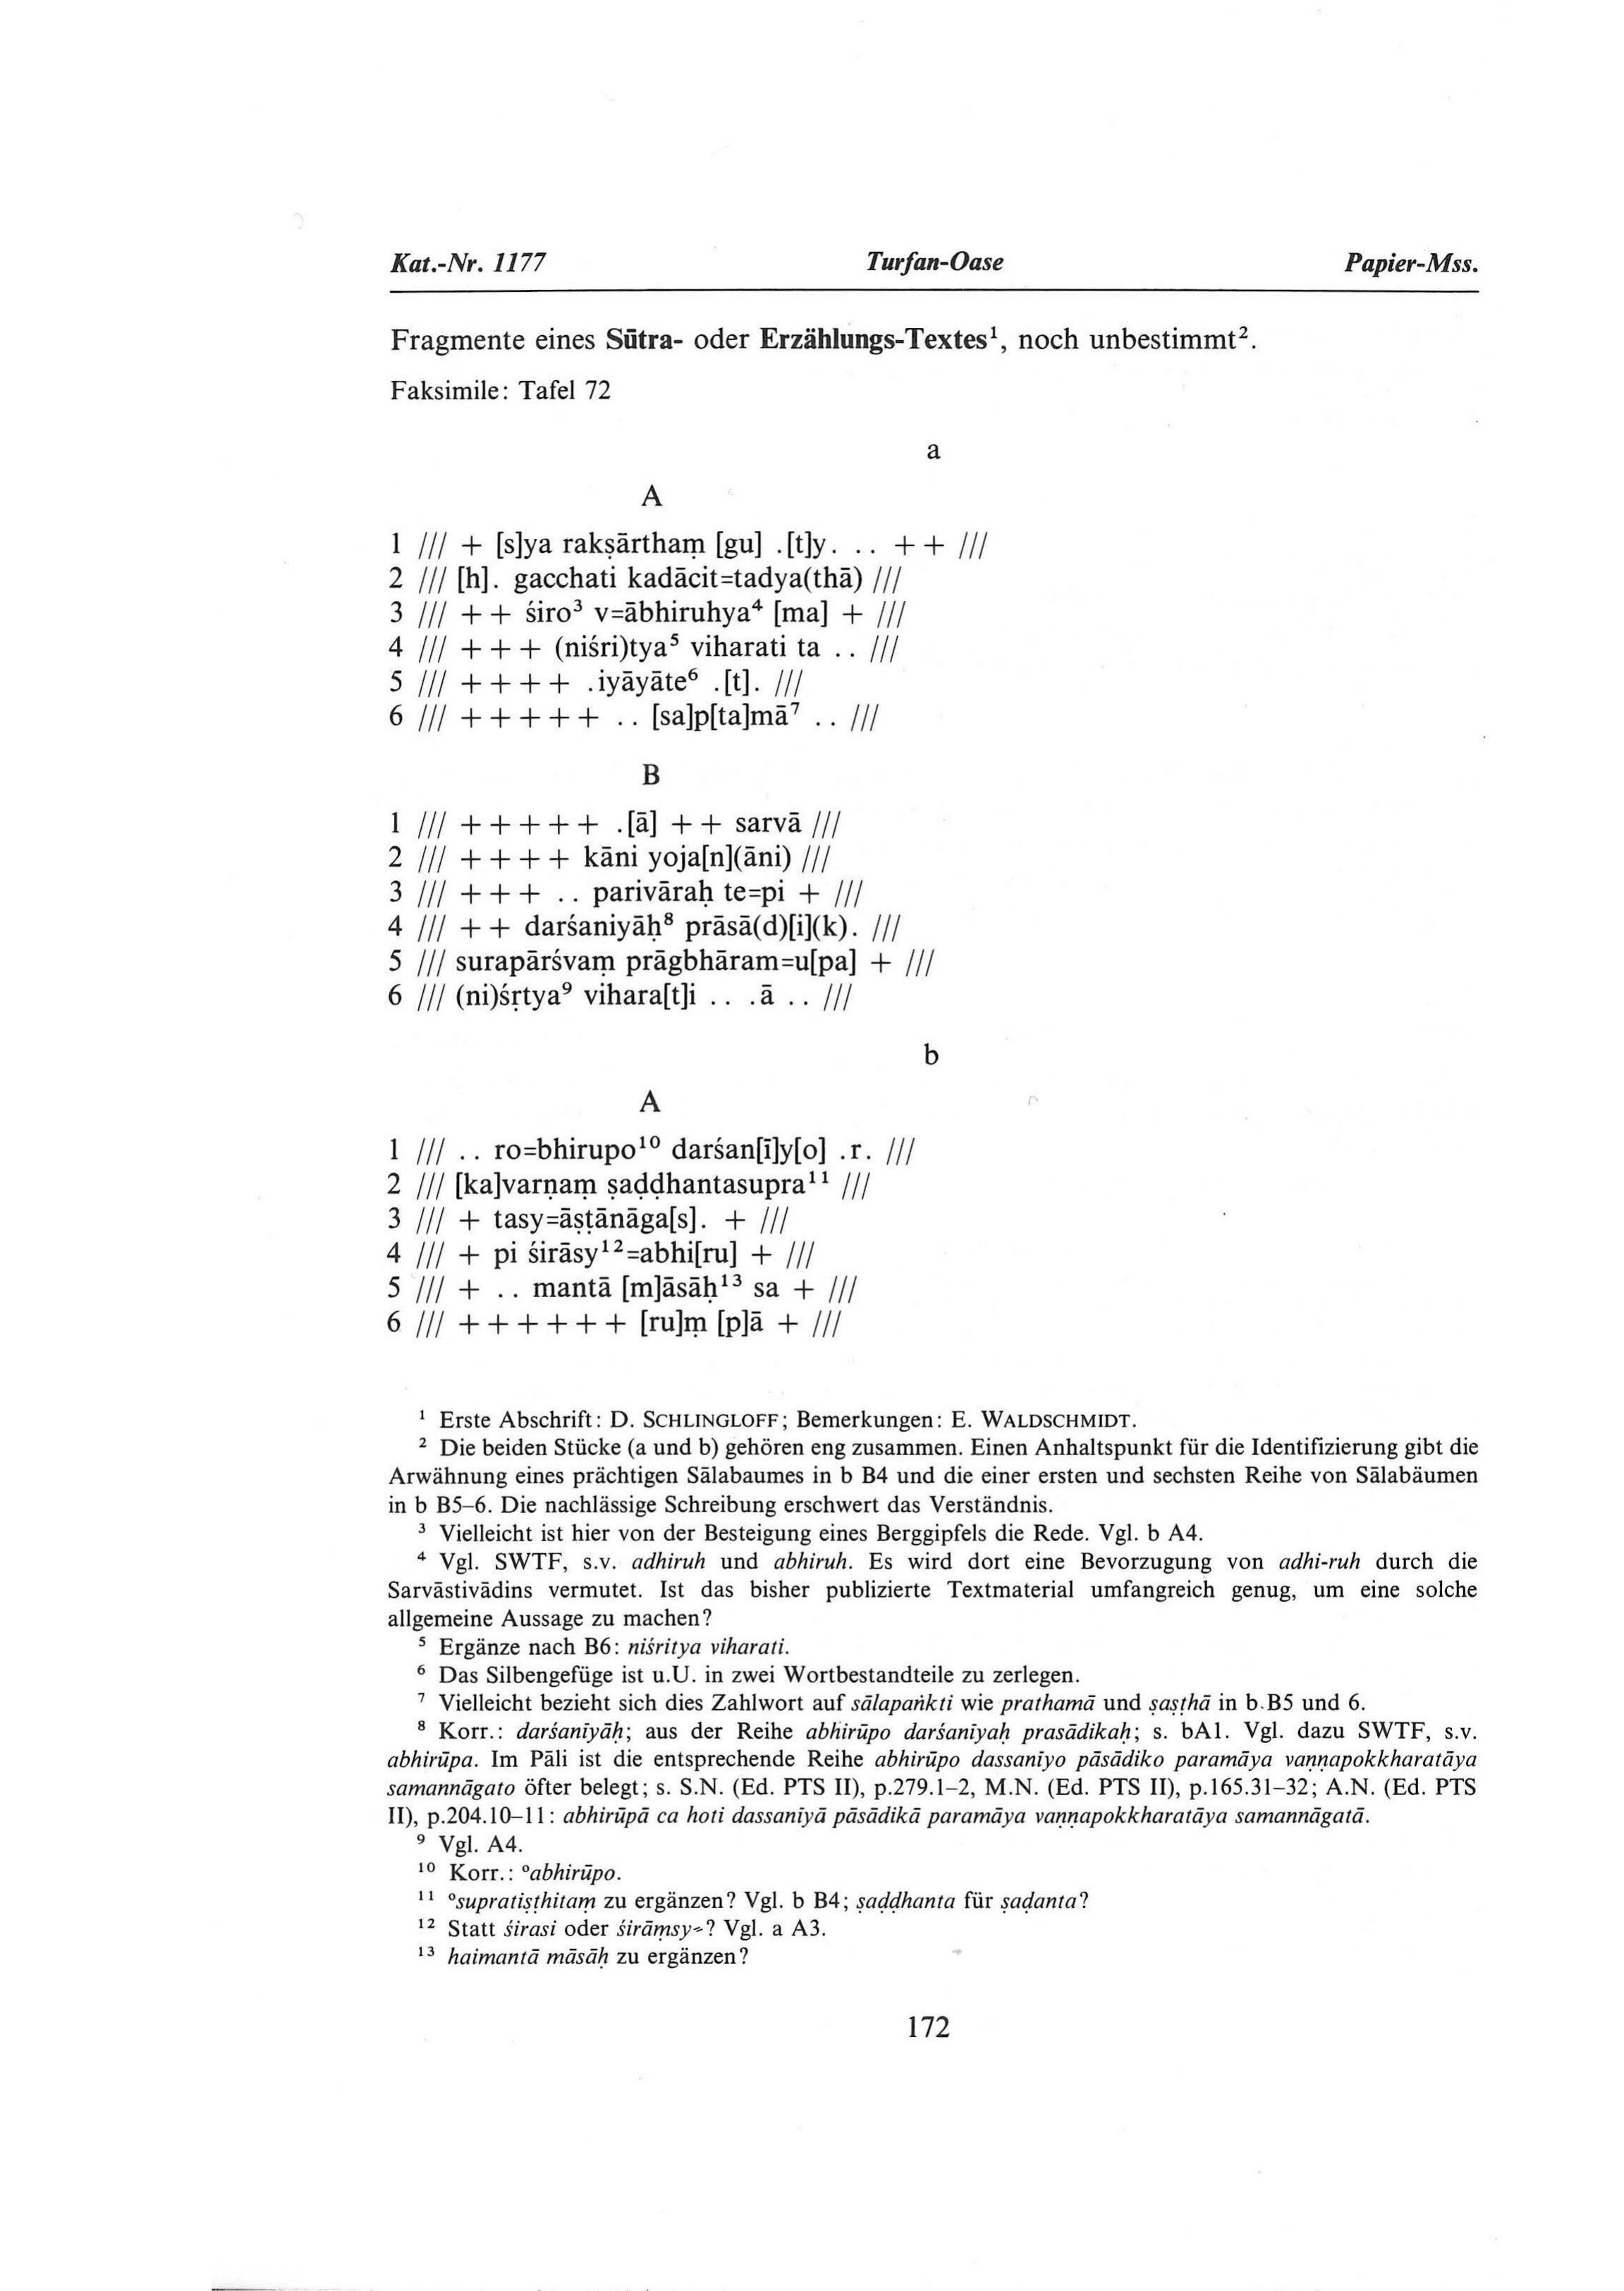 Kat.-Nr. 1177 Turfan-Oase Papier-Mss.
Fragmente eines Sūtra- oder Erzählungs-Textes¹, noch unbestimmt².
Faksimile: Tafel 72
a
A
1 /// + [s]ya rakṣārthaṃ [gu] .[t]y. .. + + ///
2 /// [h]. gacchati kadācit=tadya(thā) ///
3 /// + + śiro³ v=ābhiruhya⁴ [ma] + ///
4 /// + + + (niśri)tya⁵ viharati ta .. ///
5 /// + + + + .iyāyāte⁶ .[t]. ///
6 /// + + + + + .. [sa]p[ta]mā⁷ .. ///
B
1 /// + + + + + .[ā] + + sarvā ///
2 /// + + + + kāni yoja[n](āni) ///
3 /// + + + .. parivāraḥ te=pi + ///
4 /// + + darśaniyāḥ⁸ prāsā(d)[i](k). ///
5 /// surapārśvaṃ prāgbhāram=u[pa] + ///
6 /// (ni)śṛtya⁹ vihara[t]i .. .ā .. ///
b
A
1 /// .. ro=bhirupo¹⁰ darśan[ī]y[o] .r. ///
2 /// [ka]varṇaṃ ṣaḍḍhantasupra¹¹ ///
3 /// + tasy=āṣṭānāga[s]. + ///
4 /// + pi śirāsy¹²=abhi[ru] + ///
5 /// + .. mantā [m]āsāḥ¹³ sa + ///
6 /// + + + + + + [ru]ṃ [p]ā + ///
¹ Erste Abschrift: D. SCHLINGLOFF; Bemerkungen: E. WALDSCHMIDT.
² Die beiden Stücke (a und b) gehören eng zusammen. Einen Anhaltspunkt für die Identifizierung gibt die
Arwähnung eines prächtigen Sālabaumes in b B4 und die einer ersten und sechsten Reihe von Sālabäumen
in b B5–6. Die nachlässige Schreibung erschwert das Verständnis.
³ Vielleicht ist hier von der Besteigung eines Berggipfels die Rede. Vgl. b A4.
⁴ Vgl. SWTF, s.v. adhiruh und abhiruh. Es wird dort eine Bevorzugung von adhi-ruh durch die
Sarvāstivādins vermutet. Ist das bisher publizierte Textmaterial umfangreich genug, um eine solche
allgemeine Aussage zu machen?
⁵ Ergänze nach B6: niśritya viharati.
⁶ Das Silbengefüge ist u.U. in zwei Wortbestandteile zu zerlegen.
⁷ Vielleicht bezieht sich dies Zahlwort auf sālapaṅkti wie prathamā und ṣaṣṭhā in b.B5 und 6.
⁸ Korr.: darśanīyāḥ; aus der Reihe abhirūpo darśanīyaḥ prasādikaḥ; s. bA1. Vgl. dazu SWTF, s.v.
abhirūpa. Im Pāli ist die entsprechende Reihe abhirūpo dassaniyo pāsādiko paramāya vaṇṇapokkharatāya
samannāgato öfter belegt; s. S.N. (Ed. PTS II), p.279.1–2, M.N. (Ed. PTS II), p.165.31–32; A.N. (Ed. PTS
II), p.204.10–11: abhirūpā ca hoti dassaniyā pāsādikā paramāya vaṇṇapokkharatāya samannāgatā.
⁹ Vgl. A4.
¹⁰ Korr.: °abhirūpo.
¹¹ °supratiṣṭhitaṃ zu ergänzen? Vgl. b B4; ṣaḍḍhanta für ṣaḍanta?
¹² Statt śirasi oder śirāṃsy=? Vgl. a A3.
¹³ haimantā māsāḥ zu ergänzen?
172